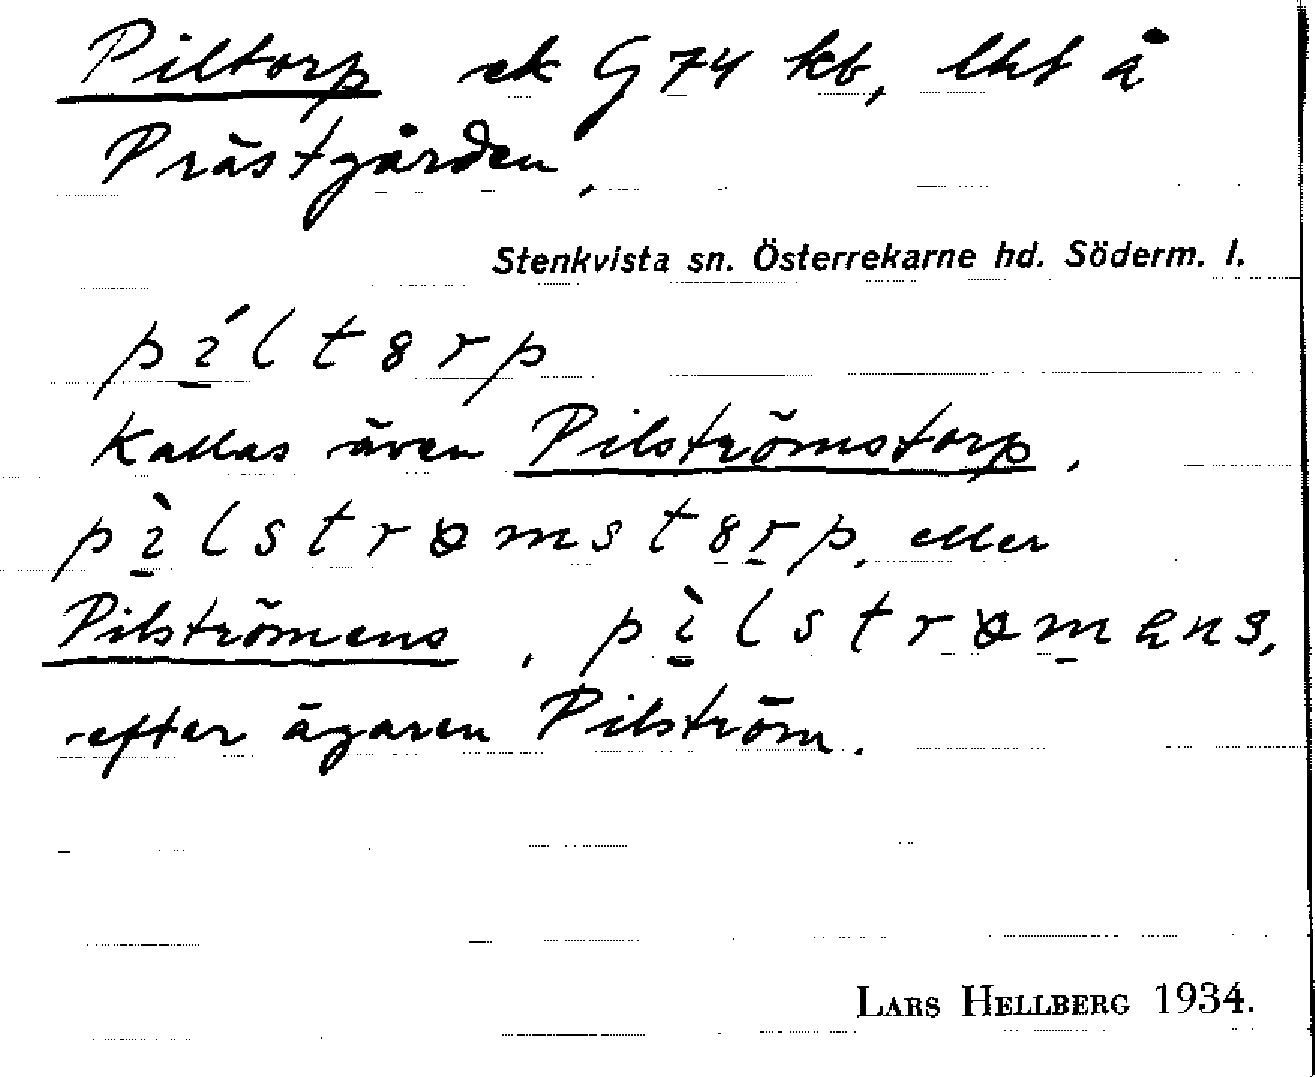 Piltorp ek G 74 kb, lht å
Prästgården,
Stenkvista sn. Österrekarne hd. Söderm. l.
píltȣrp
Kallas även Pilströmstorp,
pìlstrømstȣrp, eller
Pilströmens, pìlstrømens,
efter ägaren Pilström.
LARS HELLBERG 1934.